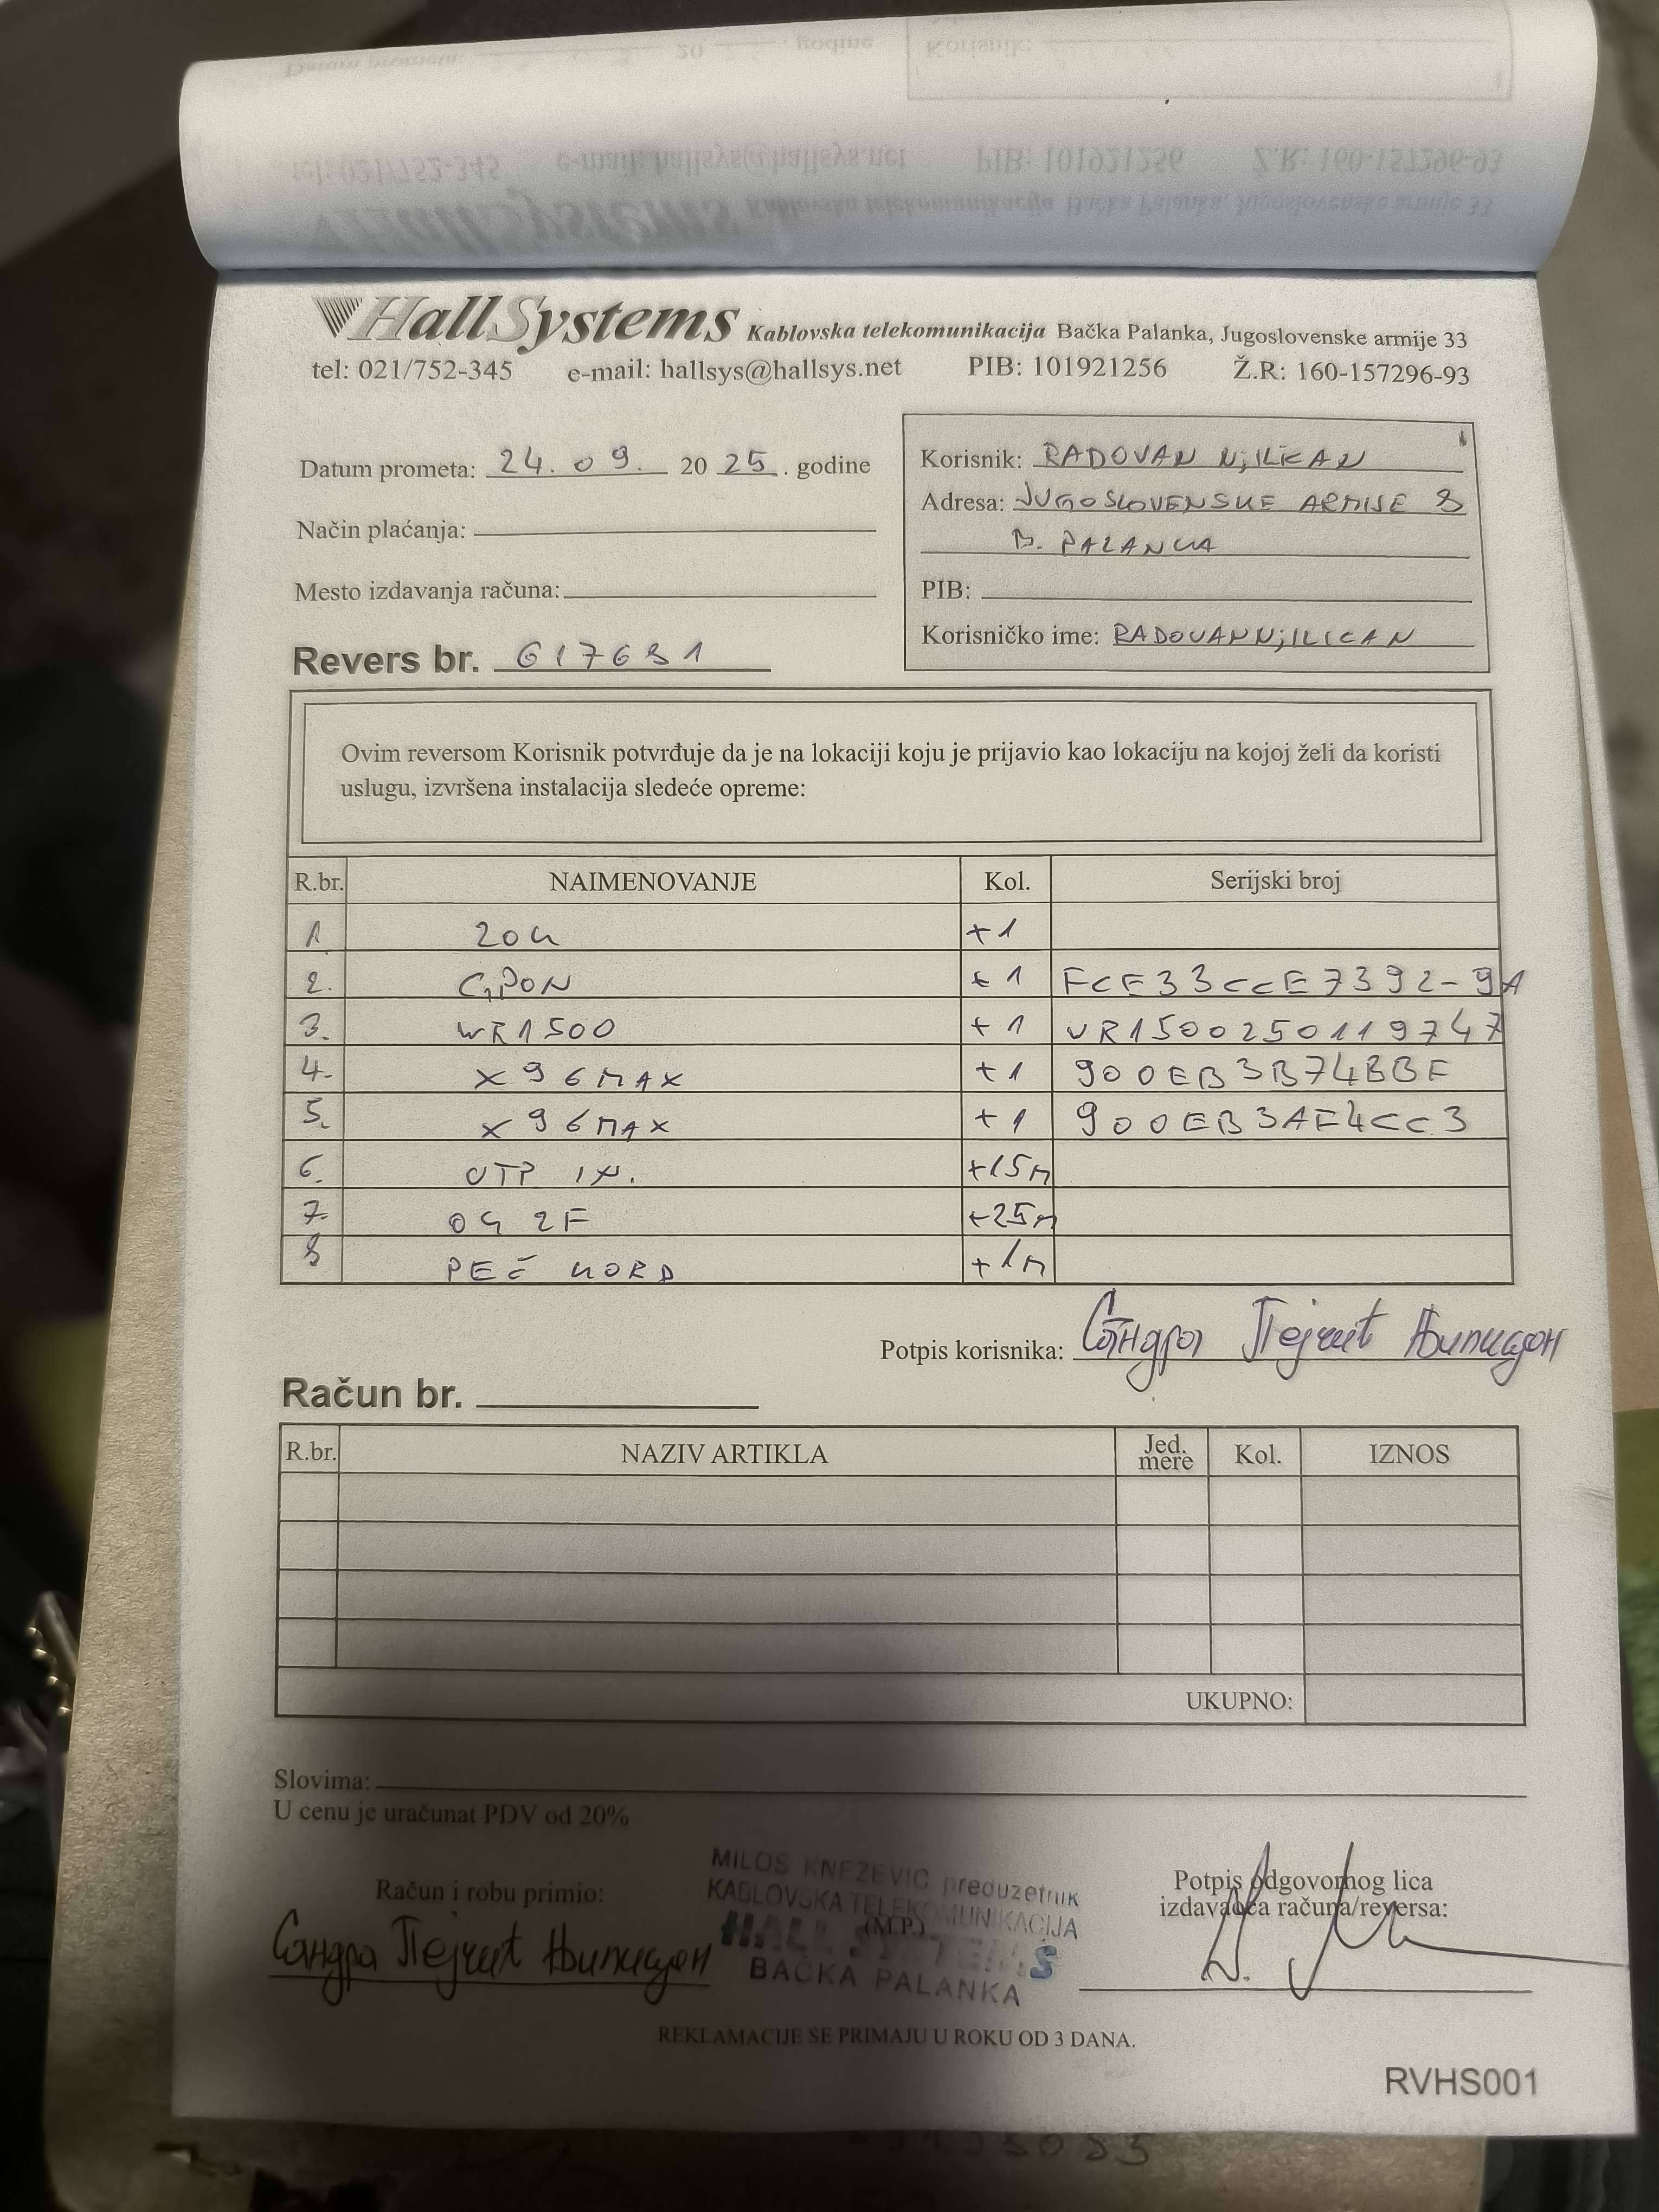 HallSystems Kablovska telekomunikacija Bačka Palanka, Jugoslovenske armije 33
tel: 021/752-345 e-mail: hallsys@hallsys.net PIB: 101921256 Ž.R: 160-157296-93
Datum prometa: 24. 09. 20 25. godine
Način plaćanja:
Mesto izdavanja računa:
Revers br. 617681
Korisnik: RADOVAN NjILICAN
Adresa: JUGOSLOVENSKE ARMIJE 8
B. PALANKA
PIB:
Korisničko ime: RADOVANNjILICAN
Ovim reversom Korisnik potvrđuje da je na lokaciji koju je prijavio kao lokaciju na kojoj želi da koristi
uslugu, izvršena instalacija sledeće opreme:
R.br. NAIMENOVANJE Kol. Serijski broj
1. ZOK +1
2. GPON +1 FCE33CCE7392-9A
3. WR1500 +1 VR1500250119747
4. X96MAX +1 900EB3B74BBF
5. X96MAX +1 900EB3AF4CC3
6. UTP +15m
7. OG 2F +25m
8 PEČ KORD +1m
Potpis korisnika: Сандра Пејчић Њилицан
Račun br.
R.br. NAZIV ARTIKLA Jed. mere Kol. IZNOS
UKUPNO:
Slovima:
U cenu je uračunat PDV od 20%
Račun i robu primio:
Сандра Пејчић Њилицан
MILOS KNEZEVIC preduzetnik
KABLOVSKA TELEKOMUNIKACIJA
(M.P.)
HALL SYSTEMS
BAČKA PALANKA
Potpis odgovornog lica
izdavaoca računa/reversa:
REKLAMACIJE SE PRIMAJU U ROKU OD 3 DANA.
RVHS001